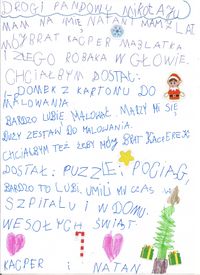 DROGI PANDOWY MIKOŁAJU
MAM NA IMIĘ NATAN I MAM 7 LAT
MÓJ BRAT KACPER MA 3 LATKA
I ZŁEGO ROBAKA W GŁOWIE.
CHCIAŁBYM DOSTAĆ:
DOMEK Z KARTONU DO
MALOWANIA
BARDZO LUBIĘ MALOWAĆ. MARZY MI SIĘ
DUŻY ZESTAW DO MALOWANIA.
CHCIAŁBYM TEŻ ŻEBY MÓJ BRAT KACPEREK
DOSTAŁ: PUZZLE I POCIĄG,
BARDZO TO LUBI. UMILI MU CZAS W
SZPITALU I W DOMU.
WESOŁYCH ŚWIĄT.
KACPER I NATAN